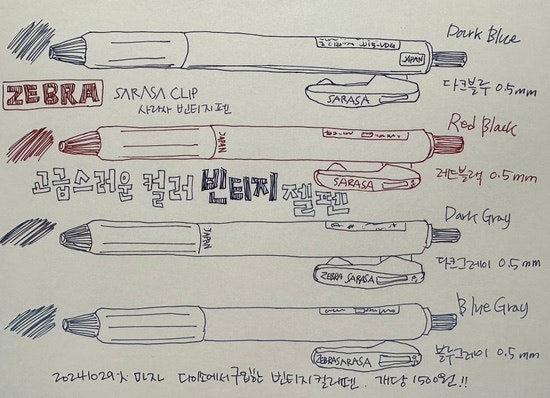 Dark Blue
JJ15-VDB
JAPAN
SARASA
다크블루 0.5mm
ZEBRA
SARASA CLIP
사라사 빈티지펜
Red Black
JAPAN
SARASA
레드블랙 0.5mm
고급스러운 컬러 빈티지 젤펜
Dark Gray
JAPAN
ZEBRA SARASA
다크그레이 0.5mm
Blue Gray
ZEBRASARASA
블루그레이 0.5mm
20241029火 마자 다이소에서구입한 빈티지컬러펜. 개당 1500원!!